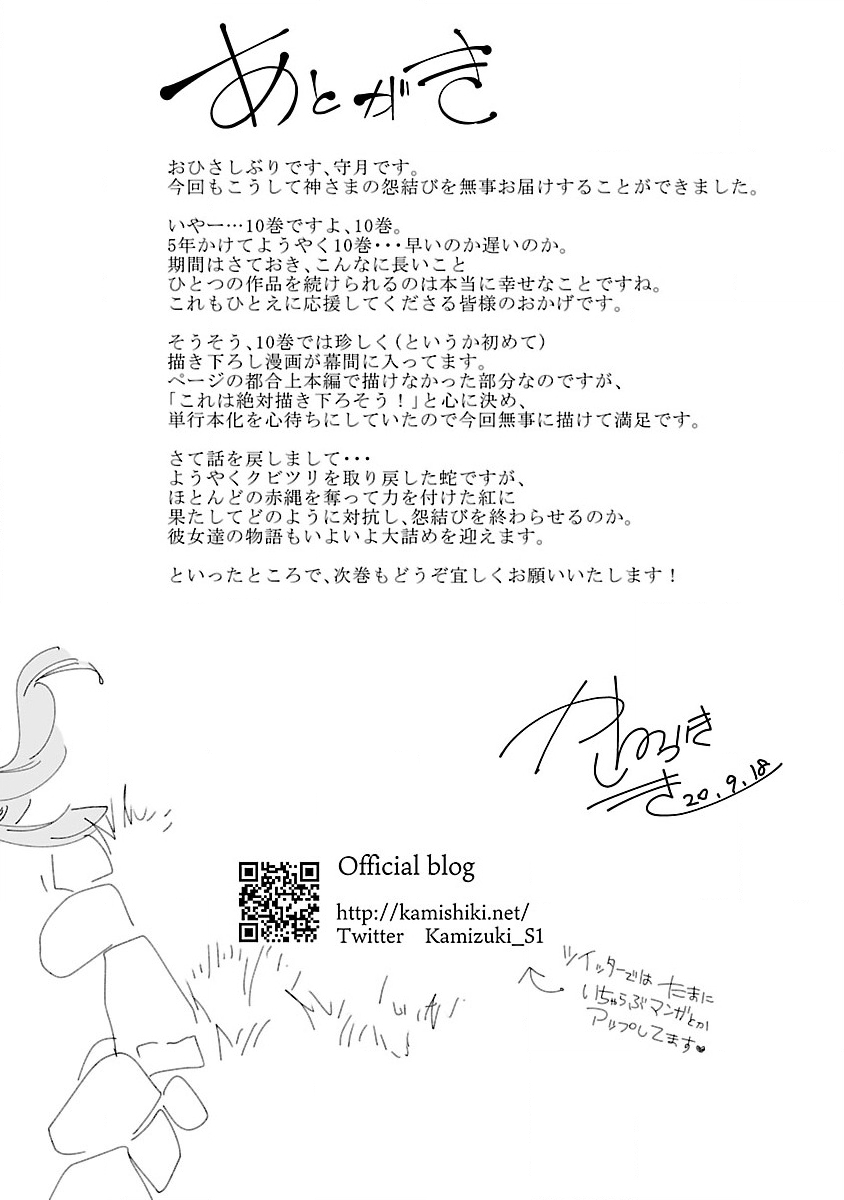 あとがき
おひさしぶりです、守月です。
今回もこうして神さまの怨結びを無事お届けすることができました。
いやー…10巻ですよ、10巻。
5年かけてようやく10巻・・・早いのか遅いのか。
期間はさておき、こんなに長いこと
ひとつの作品を続けられるのは本当に幸せなことですね。
これもひとえに応援してくださる皆様のおかげです。
そうそう、10巻では珍しく（というか初めて）
描き下ろし漫画が幕間に入ってます。
ページの都合上本編で描けなかった部分なのですが、
「これは絶対描き下ろそう！」と心に決め、
単行本化を心待ちにしていたので今回無事に描けて満足です。
さて話を戻しまして・・・
ようやくクビツリを取り戻した蛇ですが、
ほとんどの赤縄を奪って力を付けた紅に
果たしてどのように対抗し、怨結びを終わらせるのか。
彼女達の物語もいよいよ大詰めを迎えます。
といったところで、次巻もどうぞ宜しくお願いいたします！
20.9.18
Official blog
http://kamishiki.net/
Twitter Kamizuki_S1
ツイッターでは たまに
いちゃらぶマンガとか
アップしてます♥